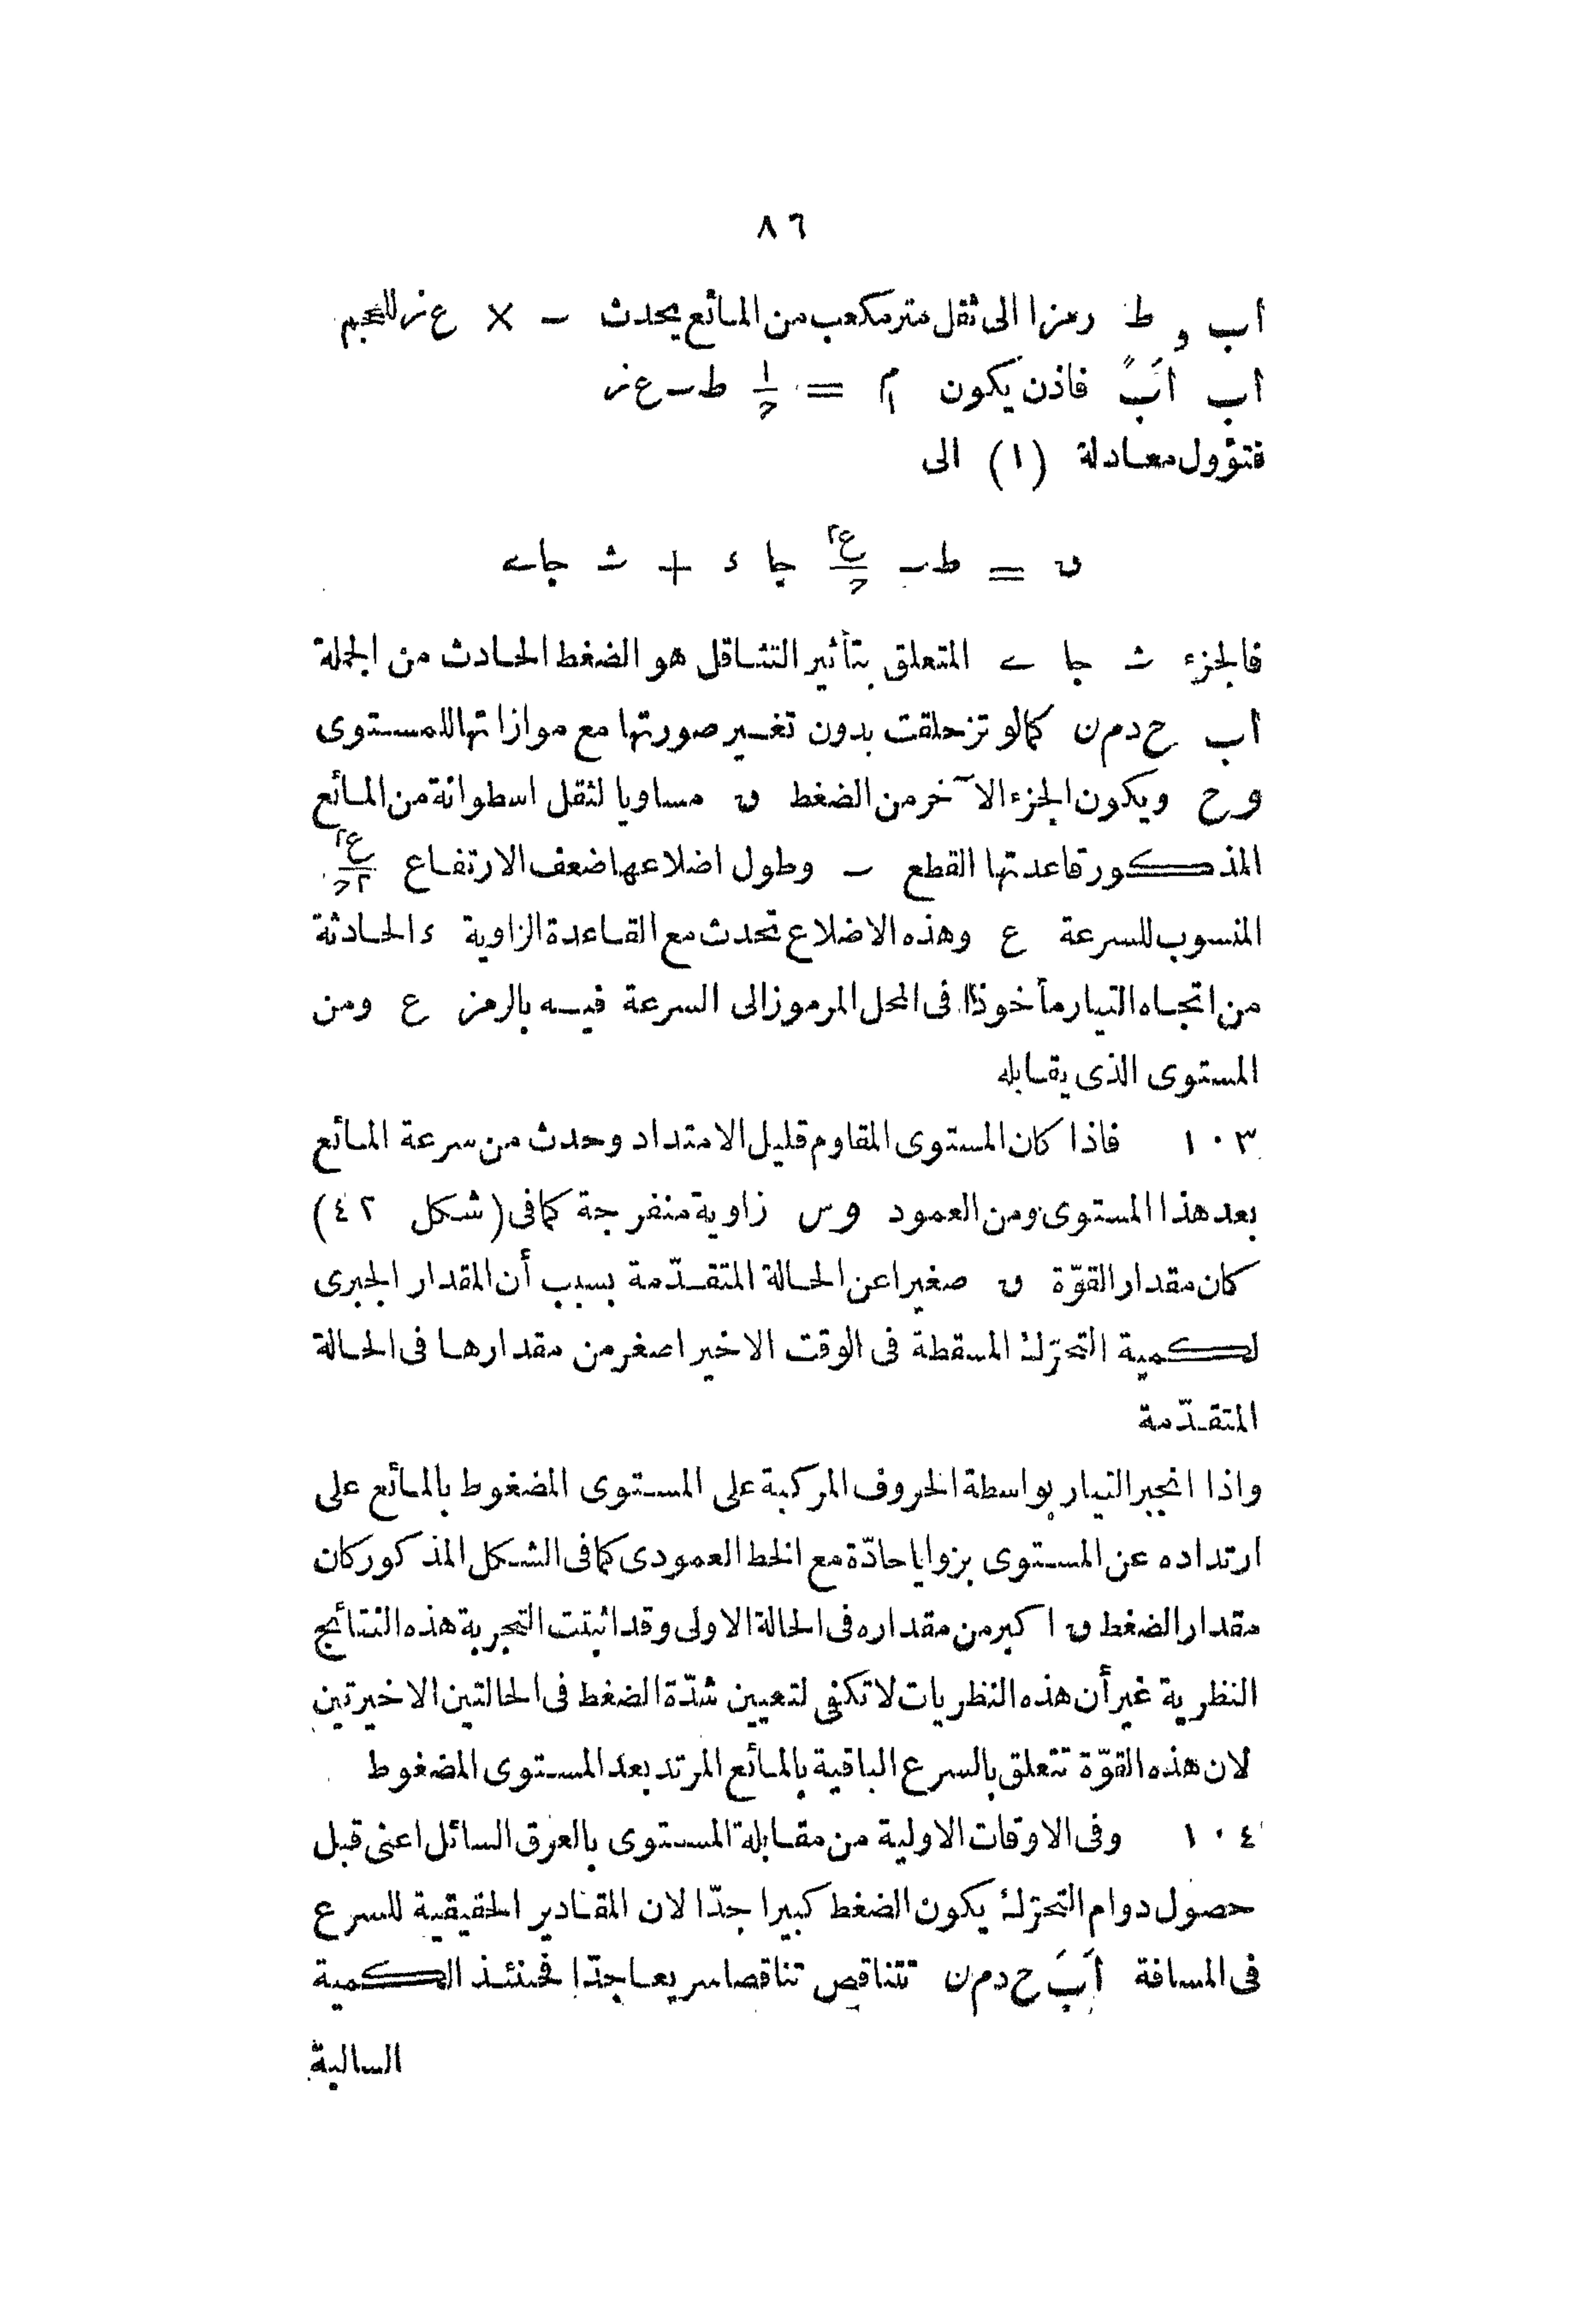 ٨٦
اب و ط رمزا الى ثقل متر مكعب من المائع يحدث ـ × ع ز للحجم
اب اَبً فاذن يكون م = ١/ح ط ـ ع ز
فتؤول معادلة (١) الى
ں = ط ـ ع٢/ح جا ء + ث جا ے
فالجزء ث جا ے المتعلق بتأثير التثاقل هو الضغط الحادث من الجملة
اب ح د م ن كمالو تزحلقت بدون تغيير صورتها مع موازاتها للمستوى
و ح ويكون الجزء الآخر من الضغط ں مساويا لثقل اسطوانة من المائع
المذكور قاعدتها القطع ـ وطول اضلاعها ضعف الارتفاع ع٢/٢ح
المنسوب للسرعة ع وهذه الاضلاع تحدث مع القاعدة الزاوية ء الحادثة
من اتجاه التيار مأخوذا فى المحل المرموز الى السرعة فيه بالرمز ع ومن
المستوى الذى يقابله
١٠٣ فاذا كان المستوى المقاوم قليل الامتداد وحدث من سرعة المائع
بعد هذا المستوى ومن العمود وس زاوية منفرجة كمافى (شكل ٤٢)
كان مقدار القوّة ں صغيرا عن الحالة المتقدّمة بسبب أن المقدار الجبرى
لكمية التحرّك المسقطة فى الوقت الاخير اصغر من مقدارها فى الحالة
المتقدّمة
واذا انجبر التيار بواسطة الحروف المركبة على المستوى المضغوط بالمائع على
ارتداده عن المستوى بزوايا حادّة مع الخط العمودى كمافى الشكل المذكور كان
مقدار الضغط ں اكبر من مقداره فى الحالة الاولى وقد اثبتت التجربة هذه النتائج
النظرية غير أن هذه النظريات لا تكفى لتعيين شدّة الضغط فى الحالتين الاخيرتين
لان هذه القوّة تتعلق بالسرع الباقية بالمائع المرتد بعد المستوى المضغوط
١٠٤ وفى الاوقات الاولية من مقابلة المستوى بالعرق السائل اعنى قبل
حصول دوام التحرّك يكون الضغط كبيرا جدّا لان المقادير الحقيقية للسرع
فى المسافة اَبَ ح د م ن تتناقص تناقصا سريعا جدّا فحنئذ الكمية
السالبة